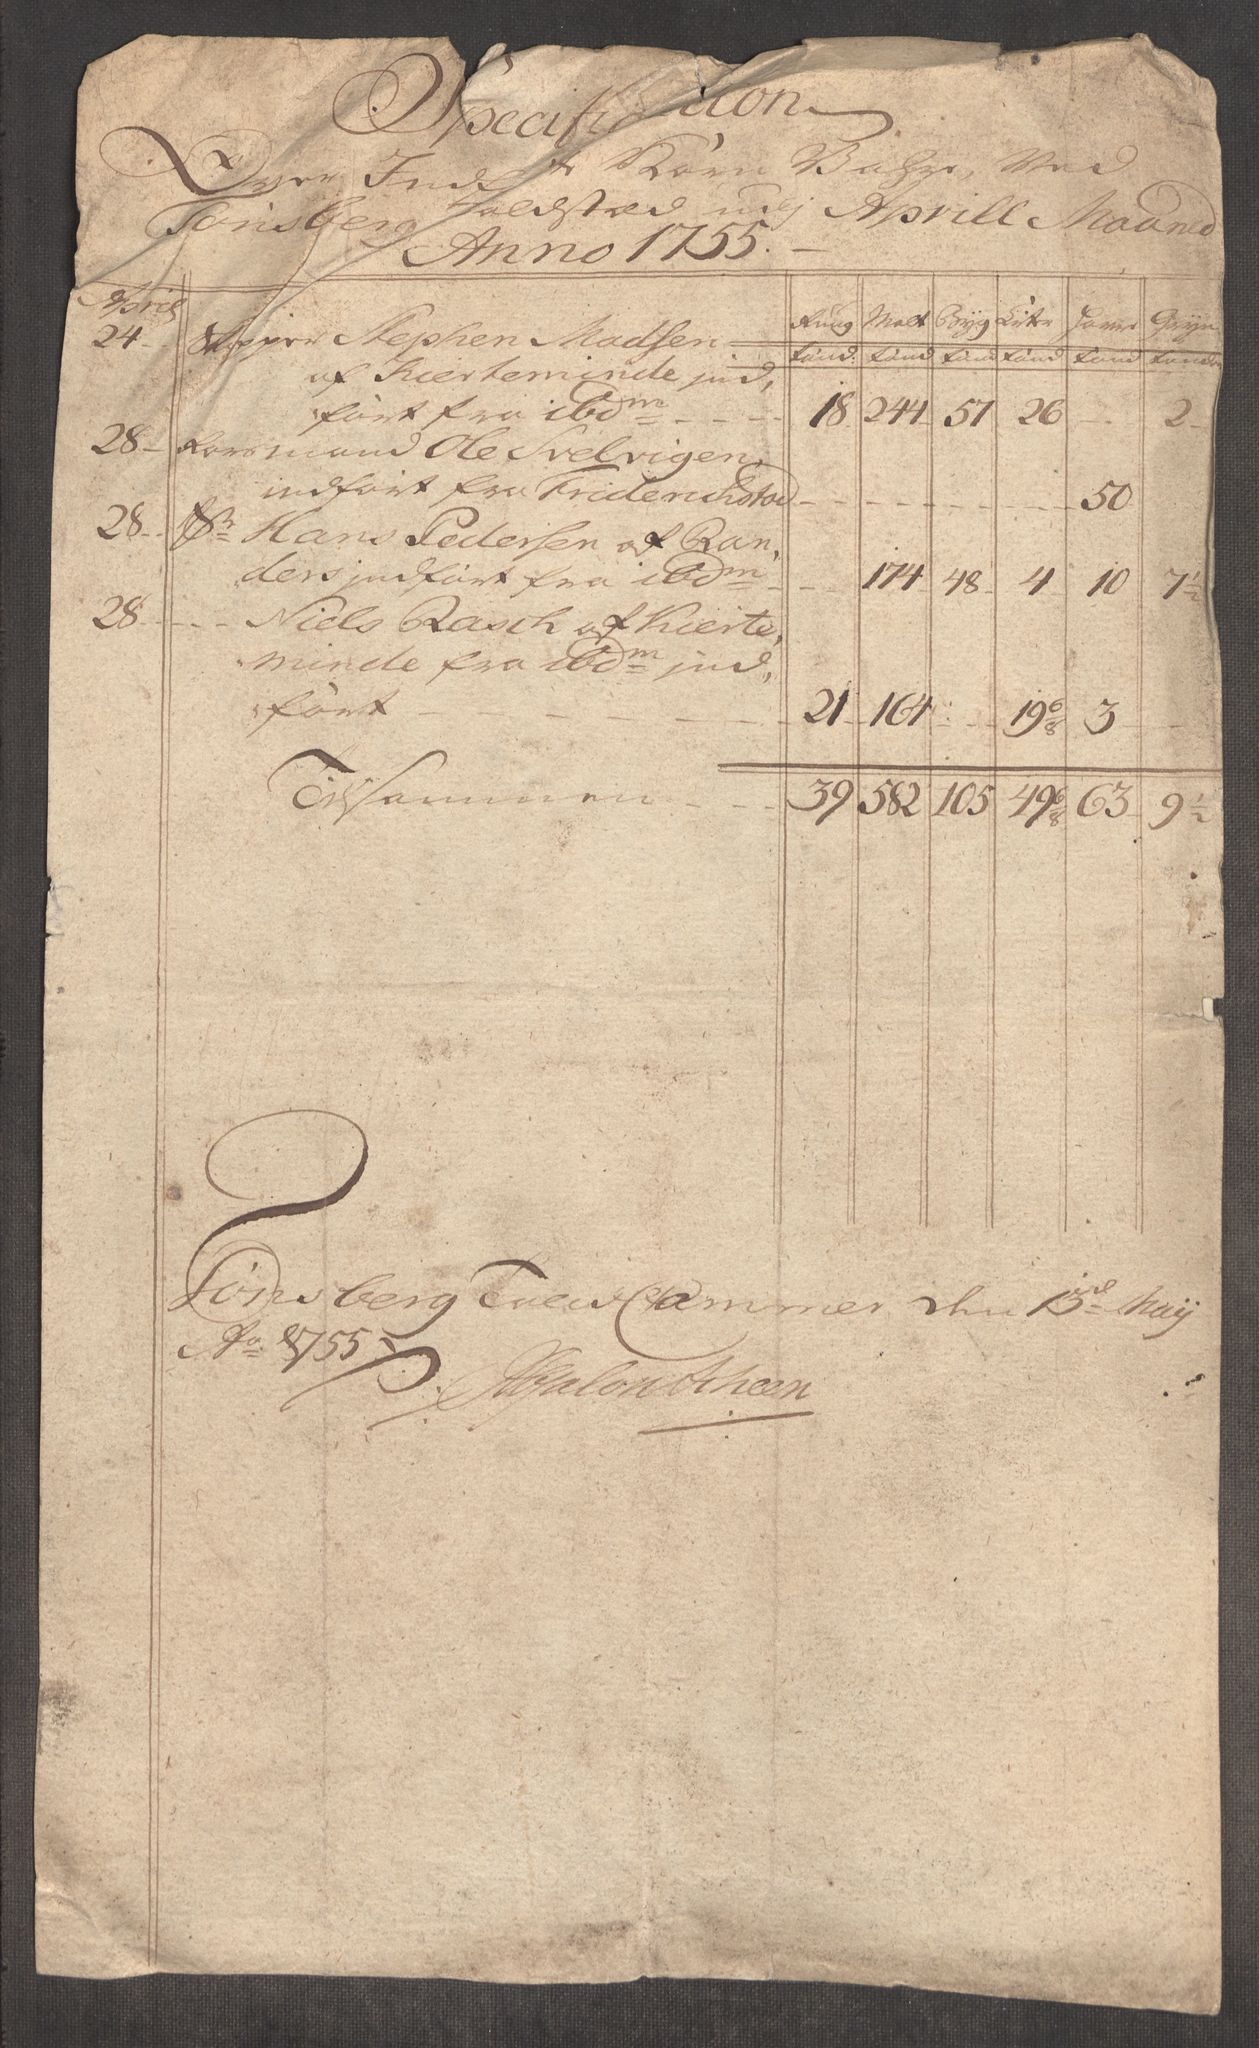 Specification
Over Indf t Korn Vahre, Ved
Tønsberg Toldsted udj Aprill Maaned
Anno 1755.
April Rug Malt Byg Erter Havre Gryn
tønd. tønd tønd tønd tønd tønder
24 Skipper Stephen Madsen
af Kierteminde ind,
ført fra ibdm 18 244 57 26 2
28 Karsmand Ole Svelvigen
indført fra Friderichstad 50
28 Skr Hans Pedersen af Ran,
ders indført fra ibdm 174 48 4 10 7 1/2
28 Niels Rasch af Kierte,
minde fra ibdm ind,
ført 21 164 19 6/8 3
Tilsammen 39 582 105 49 6/8 63 9 1/2
Tønsberg Told Cammer den 13d Maij
Ao 1755
Absalon Scheen